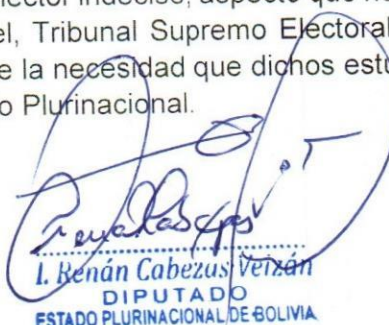 ector indeciso, aspecto que
el, Tribunal Supremo Electoral
e la necesidad que dichos estu
o Plurinacional.
I. Renán Cabezas Veizán
DIPUTADO
ESTADO PLURINACIONAL DE BOLIVIA